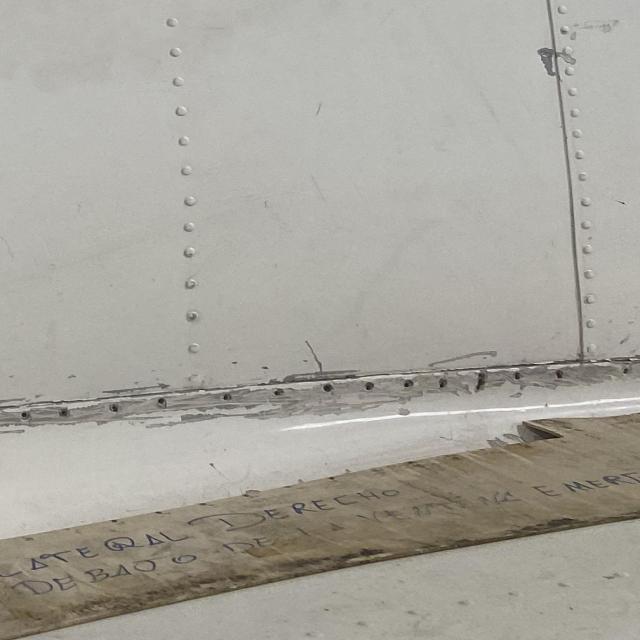 LATERAL DERECHO
DEBAJO DE LA VENTANA EMERG